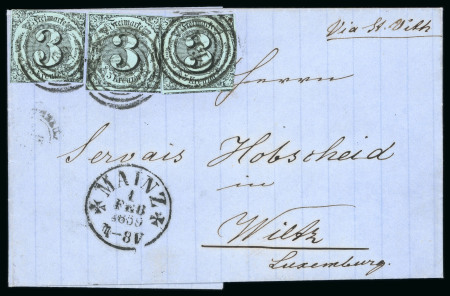 Via St. Vith
Freimarke
3
3 Kreuzer
Freimarke
3
3 Kreuzer
3
Herrn
Servais Hobscheid
in
Wiltz
Luxemburg.
MAINZ
1
FEB
1859